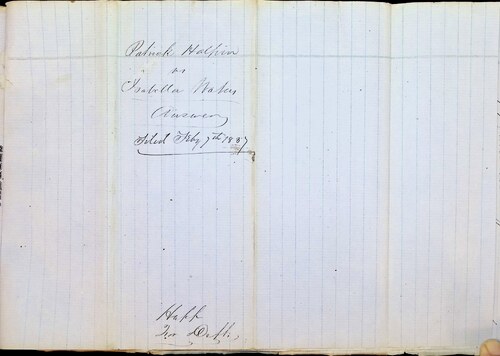 Patrick Halpin
vs
Isabella
Answer
Filed Feby 7th 1887
Hupp
For Deft.